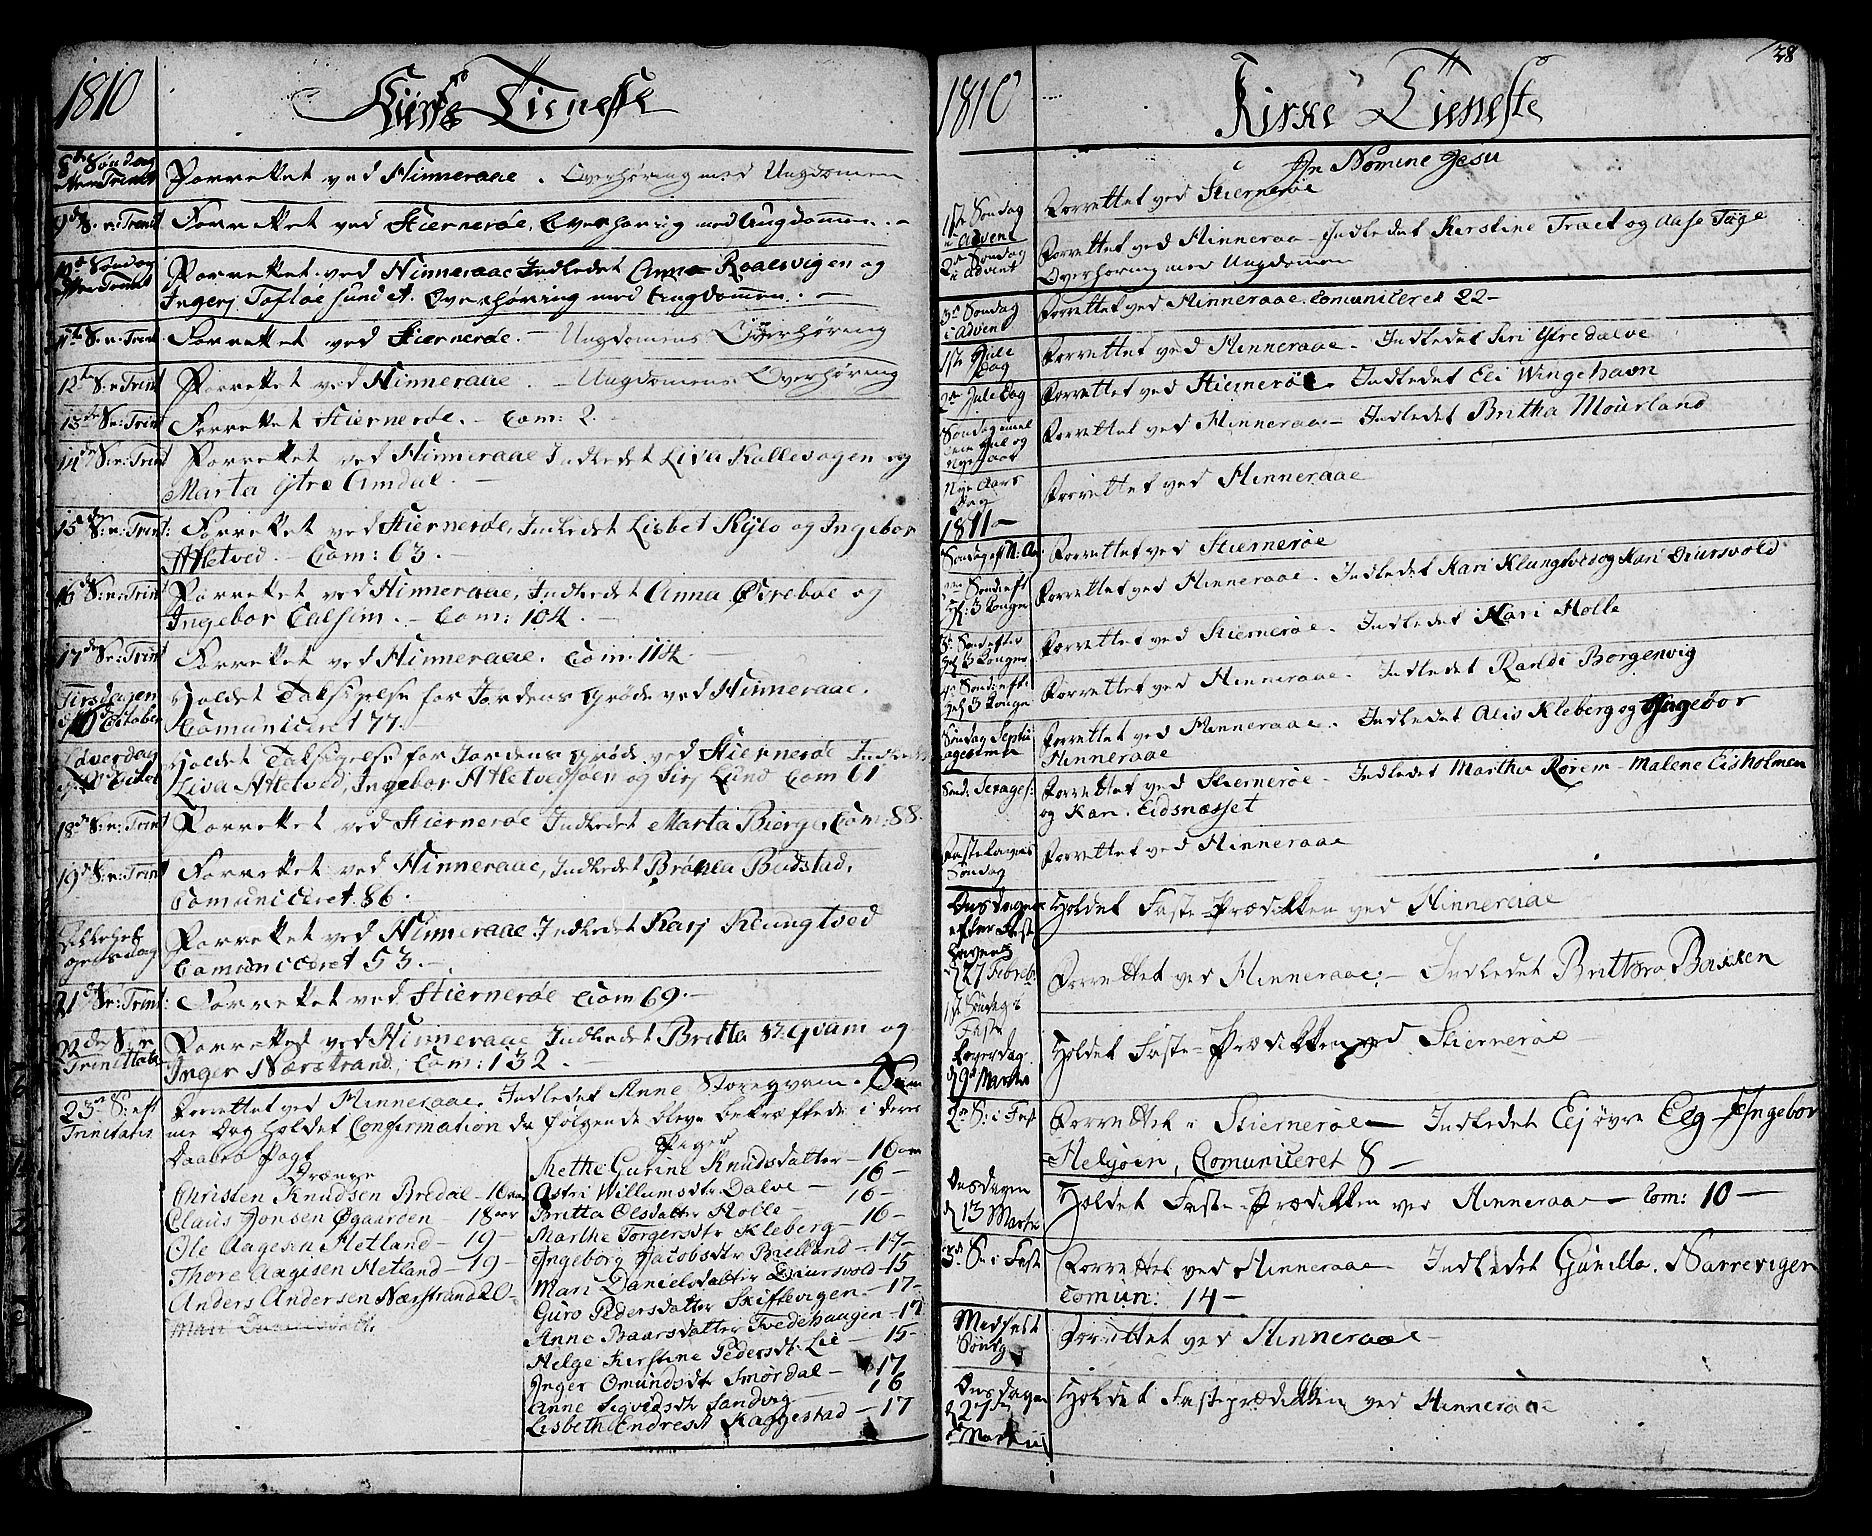 1810
Kirke Tieneste
8de Søndag
efter Trinit
Forrettet ved Hinneraae. Overhøring med Ungdomen
9de S: e: Trinit
Forrettet ved Stiernerøe, Overhøring med Ungdommen. -
10de Søndag
efter Trinit
Forrettet ved Hinneraae Indledet Anna Raaesvigen og
Ingerj Tofløe sund St. Overhøring med Ungdommen. -
11te S: e: Trinit
Forrettet ved Stiernerøe. - Ungdomens Overhøring
12te S: e: Trinit
Forrettet ved Hinneraae. - Ungdomens Overhøring
13de S: e: Trinit
Forrettet Stiernerøe. - Com: 2. -
14de S: e: Trinit
Forrettet ved Hinneraae Indledet Liva Kallevogen og
Marta Ytre Amdal. -
15de S: e: Trinit:
Forrettet ved Stiernerøe, Indledet Lisbet Kylo og Ingebor
Atletved. - Com: 63. -
16de S: e: Trinit
Forrettet ved Hinneraae, Indledet Anna Øvreboe og
Ingebor Calsim. - Com: 104. -
17de S: e: Trinit
Forrettet ved Hinneraae. Com: 114.
Tirsdagen
10 October
Holdet Taksigelse for Jordens Grøde ved Hinneraae.
Comuniceret 77. -
Løverdag
Holdet Taksigelse for Jordens Grøde ved Stiernerøe Indledet
Liva Atletved, Ingebor Atletvedsøen og Sirj Lund Com 61
18de S: e: Trinit
Forrettet ved Stiernerøe Indledet Marta Bierge, Com: 88.
19de S: e: Trinit
Forrettet ved Hinneraae, Indledet Brönla Budstad,
Comuniceret. 86.
Allehel
gensdag
Forrettet ved Hinneraae Indledet Karj Klungtved
Comuniceret 53. -
21de S: e: Trinit:
Forrettet ved Stiernerøe Com 69. -
22de S: e
Trinitatis
Forrettet ved Hinneraae Indledet Britta St. Qvam og
Inger Nærstrand, Com: 132.
23de S: eft
Trinitatis
Forrettet ved Hinneraae. Indledet Anne Storeqvam. Sam
me Dag holdet Confirmation da følgende bleve bekræftede i deres
Daabes Pagt
Drænge
Christen Knudsen Bredal - 16 aar
Claus Jonsen Øgaarden - 18 aar
Ole Aagesen Hetland - 19 -
Thore Aagesen Hetland - 19 -
Anders Andersen Nærstrand 20 -
Mari Danielsdatt:
Piger
Methe Gurine Knudsdatter - 16 aar
Astri Willumsdtr Dalve - 16 -
Britta Olsdatter Holle - 16 -
Marthe Torgersdtr Kleberg - 16 -
Ingeborg Jacobsdtr Bielland - 17 -
Mari Danielsdatter Diursvold - 15
Guro Pedersdatter Skiftevigen - 17 -
Anne Baarsdatter Tvedehaugen - 17
Helge Kirstine Pedersdt: Lie - 15 -
Inger Omundsdtr Smørdal - 17
Anne Sigvidsdtr Sandvig - 16
Lisbeth Endresdt Kaggestad - 17
1810
Kirke Tieneste
38
In Nomine Jesu
1ste Søndag
i Advent
Forrettet ved Stiernerøe
2den Søndag
i Advent
Forrettet ved Hinneraae - Indledet Kirstine Traet og Aase Tøge
Overhøring med Ungdomen
3de Søndag
i Advent
Forrettet ved Hinneraae. Comuniceret 22 -
1ste Jule
Dag
Forrettet ved Hinneraae. Indledet Siri Ytredalve
2den Jule Dag
Forrettet ved Stiernerøe - Indledet Eli Wingehavn
Søndag imel
lem Jul og
Nye Aar
Forrettet ved Hinneraae - Indledet Britha Mourland
Nye Aars
Dag
Forrettet ved Hinneraae
1811 -
Søndag eft N: A:
Forrettet ved Stiernerøe
Sønd: eft
Hel: 3 Konger
Forrettet ved Hinneraae. Indledet Kari Klungtved og Kari Diursvold
Sønd: efter
Hel: 3 Konger
Forrettet ved Stiernerøe. Indledet Kari Holle
4de Sønd: eft
Hel: 3 Konger
Forrettet ved Hinneraae. Indledet Randi Borgenvig
Søndag Septu
agesima
Forrettet ved Hinneraae. Indledet Alis Kleberg og Ingebor
Hinneraae
Sønd: Sexages:
Forrettet ved Stiernerøe. Indledet Martha Rørem - Malene Eisholmen
og Kari Eidsnæsset
Fastelavns
Søndag
Forrettet ved Hinneraae
Onsdagen
efter Faste
lavens
d: 27 Febr:
Holdet Faste-Prædikken ved Hinneraae
1ste Søndag i
Faste
Forrettet ved Hinneraae: - Indledet Brittha Bakken
Løverdag
d: 9de Martii
Holdet Faste-Prædikken ved Stiernerøe -
2den S: i Fast
Forrettet i Stiernerøe - Indledet Ej øvre Eeg - Ingebor
Helgøen, Comuniceret 8 -
Onsdagen
d 13 Martii
Holdet Faste-Prædikken ved Hinneraae - Com: 10 -
3de S: i Fast
Forrettet ved Hinneraae - Indledet Gunilla Narreviger
Comun: 14 -
Midfast
Søndg
Forrettet ved Hinneraae -
Onsdagen
d 27de
Martii
Holdet Fasteprædikken ved Hinneraae